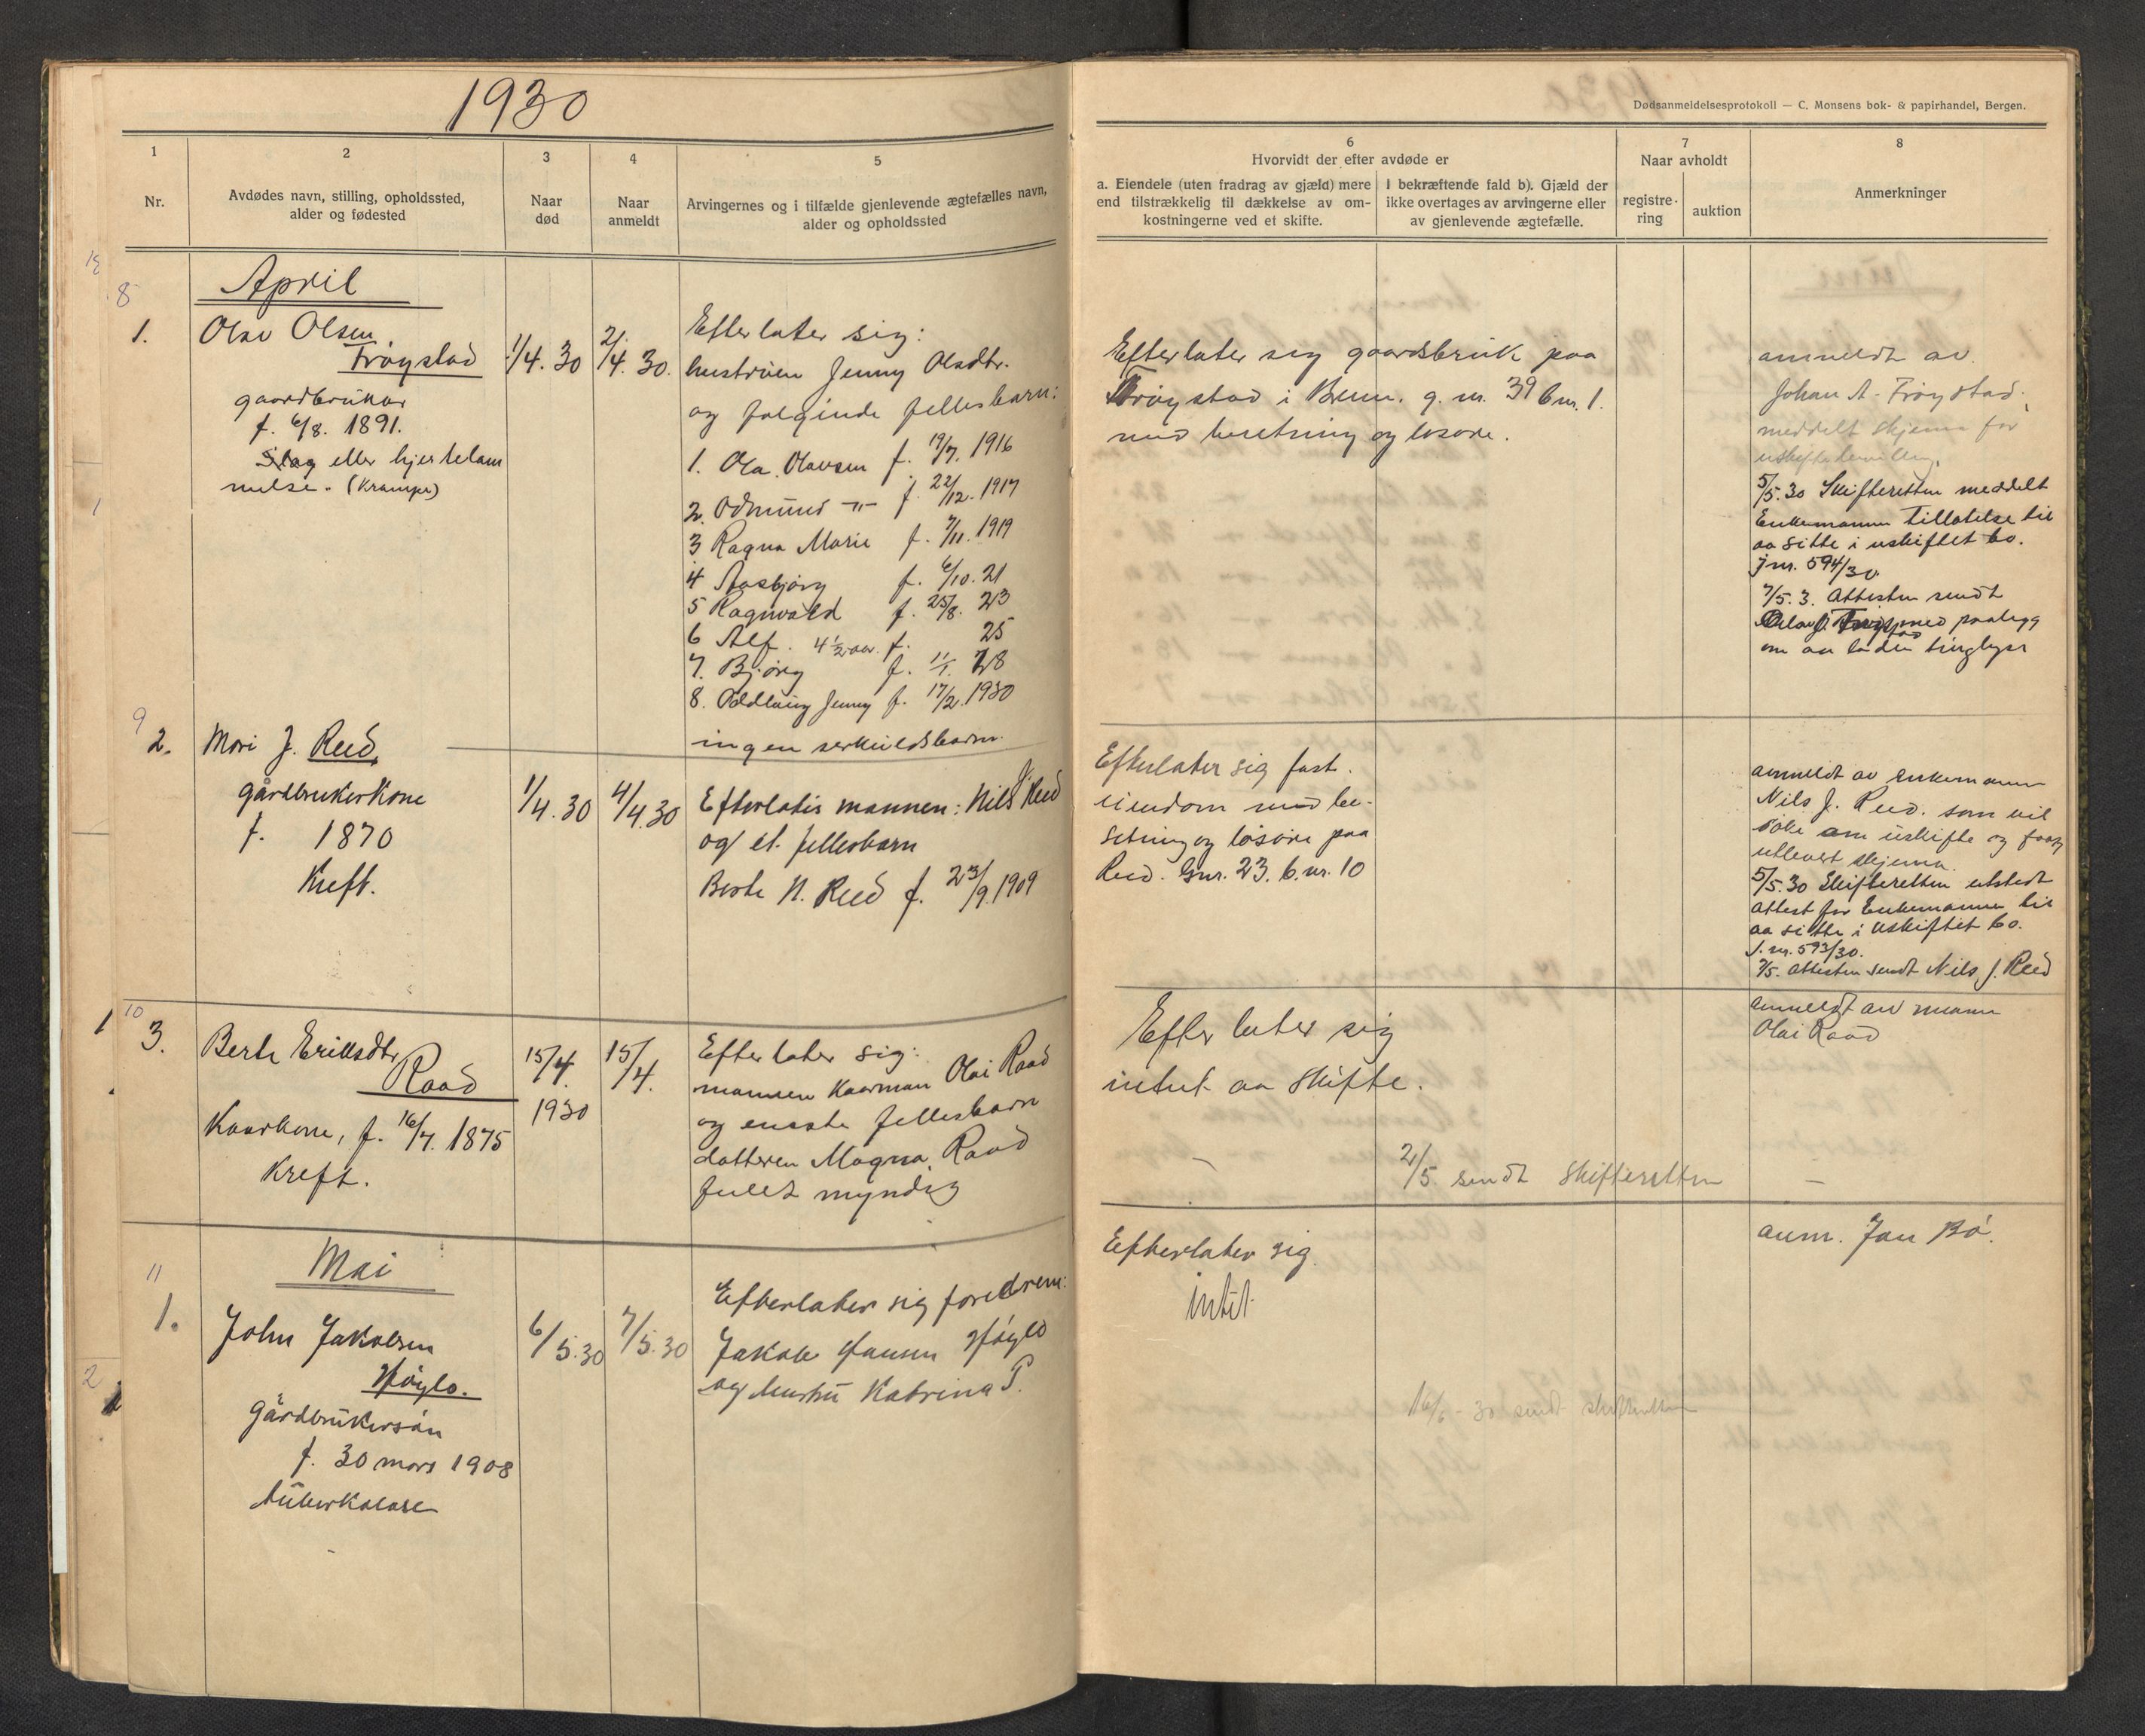 1930
Dødsanmeldelsesprotokoll — C. Monsens bok- & papirhandel, Bergen.
1
2
3
4
5
6
7
8
Nr.
Avdødes navn, stilling, opholdssted,
alder og fødested
Naar
død
Naar
anmeldt
Arvingernes og i tilfælde gjenlevende ægtefælles navn,
alder og opholdssted
Hvorvidt der efter avdøde er
a. Eiendele (uten fradrag av gjæld) mere
end tilstrækkelig til dækkelse av om-
kostningerne ved et skifte.
I bekræftende fald b). Gjæld der
ikke overtages av arvingerne eller
av gjenlevende ægtefælle.
Naar avholdt
registre-
ring
auktion
Anmerkninger
April
8
1.
Olav Olsen
Frøystad
gaardbruker
f. 6/8. 1891.
Slag eller hjertelam
melse. (Krampe)
1/4. 30
2/4. 30.
Efterlater sig:
hustruen Jenny Olsdtr.
og følginde fellesbarn:
1. Ola Olavsen f. 19/7. 1916
2. Odmund -"- f. 22/12. 1917
3 Ragna Marie f. 7/11. 1919
4 Aasbjørg f. 6/10. 21
5 Ragnvald f. 25/8. 23
6 Alf. 4 1/2 aar f. 25
7. Bjørg f. 11/1. 28
8. Oddlaug Jenny f. 17/2. 1930
ingen serkuldsbarn.
Efterlater sig gaardsbruk paa
Frøystad i Brem. g. nr. 39 b nr. 1.
med besetning og løsøre.
anmeldt av.
Johan A. Frøystad.
meddelt skjema for
uskiftebevilling.
5/5. 30 Skifteretten meddelt
Enkemannen Tillatelse til
aa sitte i uskiftet bo.
j nr. 594/30
7/5. 3. Attesten sendt
med paalegg
om aa la den tinglyse
9
2.
Mari J. Reed,
gårdbrukerkone
f. 1870
Kreft.
1/4. 30
4/4. 30
Efterlatis mannen: Nils J. Reed
og et fellesbarn
Berte N. Reed f. 23/9. 1909
Efterlater sig fast.
eiendom med be-
setning og løsøre paa
Reed. Gnr. 23. b. nr. 10
anmeldt av enkemann
Nils J. Reed. som vil
søke om uskifte og faar
utlevert skjema.
5/5. 30 Skifteretten utstedt
attest for Enkemannen til
aa sitte i uskiftet bo.
J. nr. 593/30.
7/5. Attesten sendt Nils J. Reed
10
3.
Berte Eriksdtr
Raad
Kaarkone, f. 16/7. 1875
Kreft.
15/4.
1930
15/4.
Efterlater sig:
mannen Kaarman Olai Raad
og eneste fellesbarn
datteren Magna Raad
fullt myndig
Efterlater sig
intet aa skifte.
2/5. sendt skifteretten
anmeldt av mann
Olai Raad
Mai
11
1.
John Jakobsen
Høylo.
gårdbrukersøn
f. 30 mars 1908
tuberkulose
6/5. 30
7/5. 30
Efterlater sig foreldrene:
Jakob Hansen Høylo
og hustru Katrina P.
Efterlater sig
intet
16/6 - 30 sendt skifteretten
anm. Jan Bø.